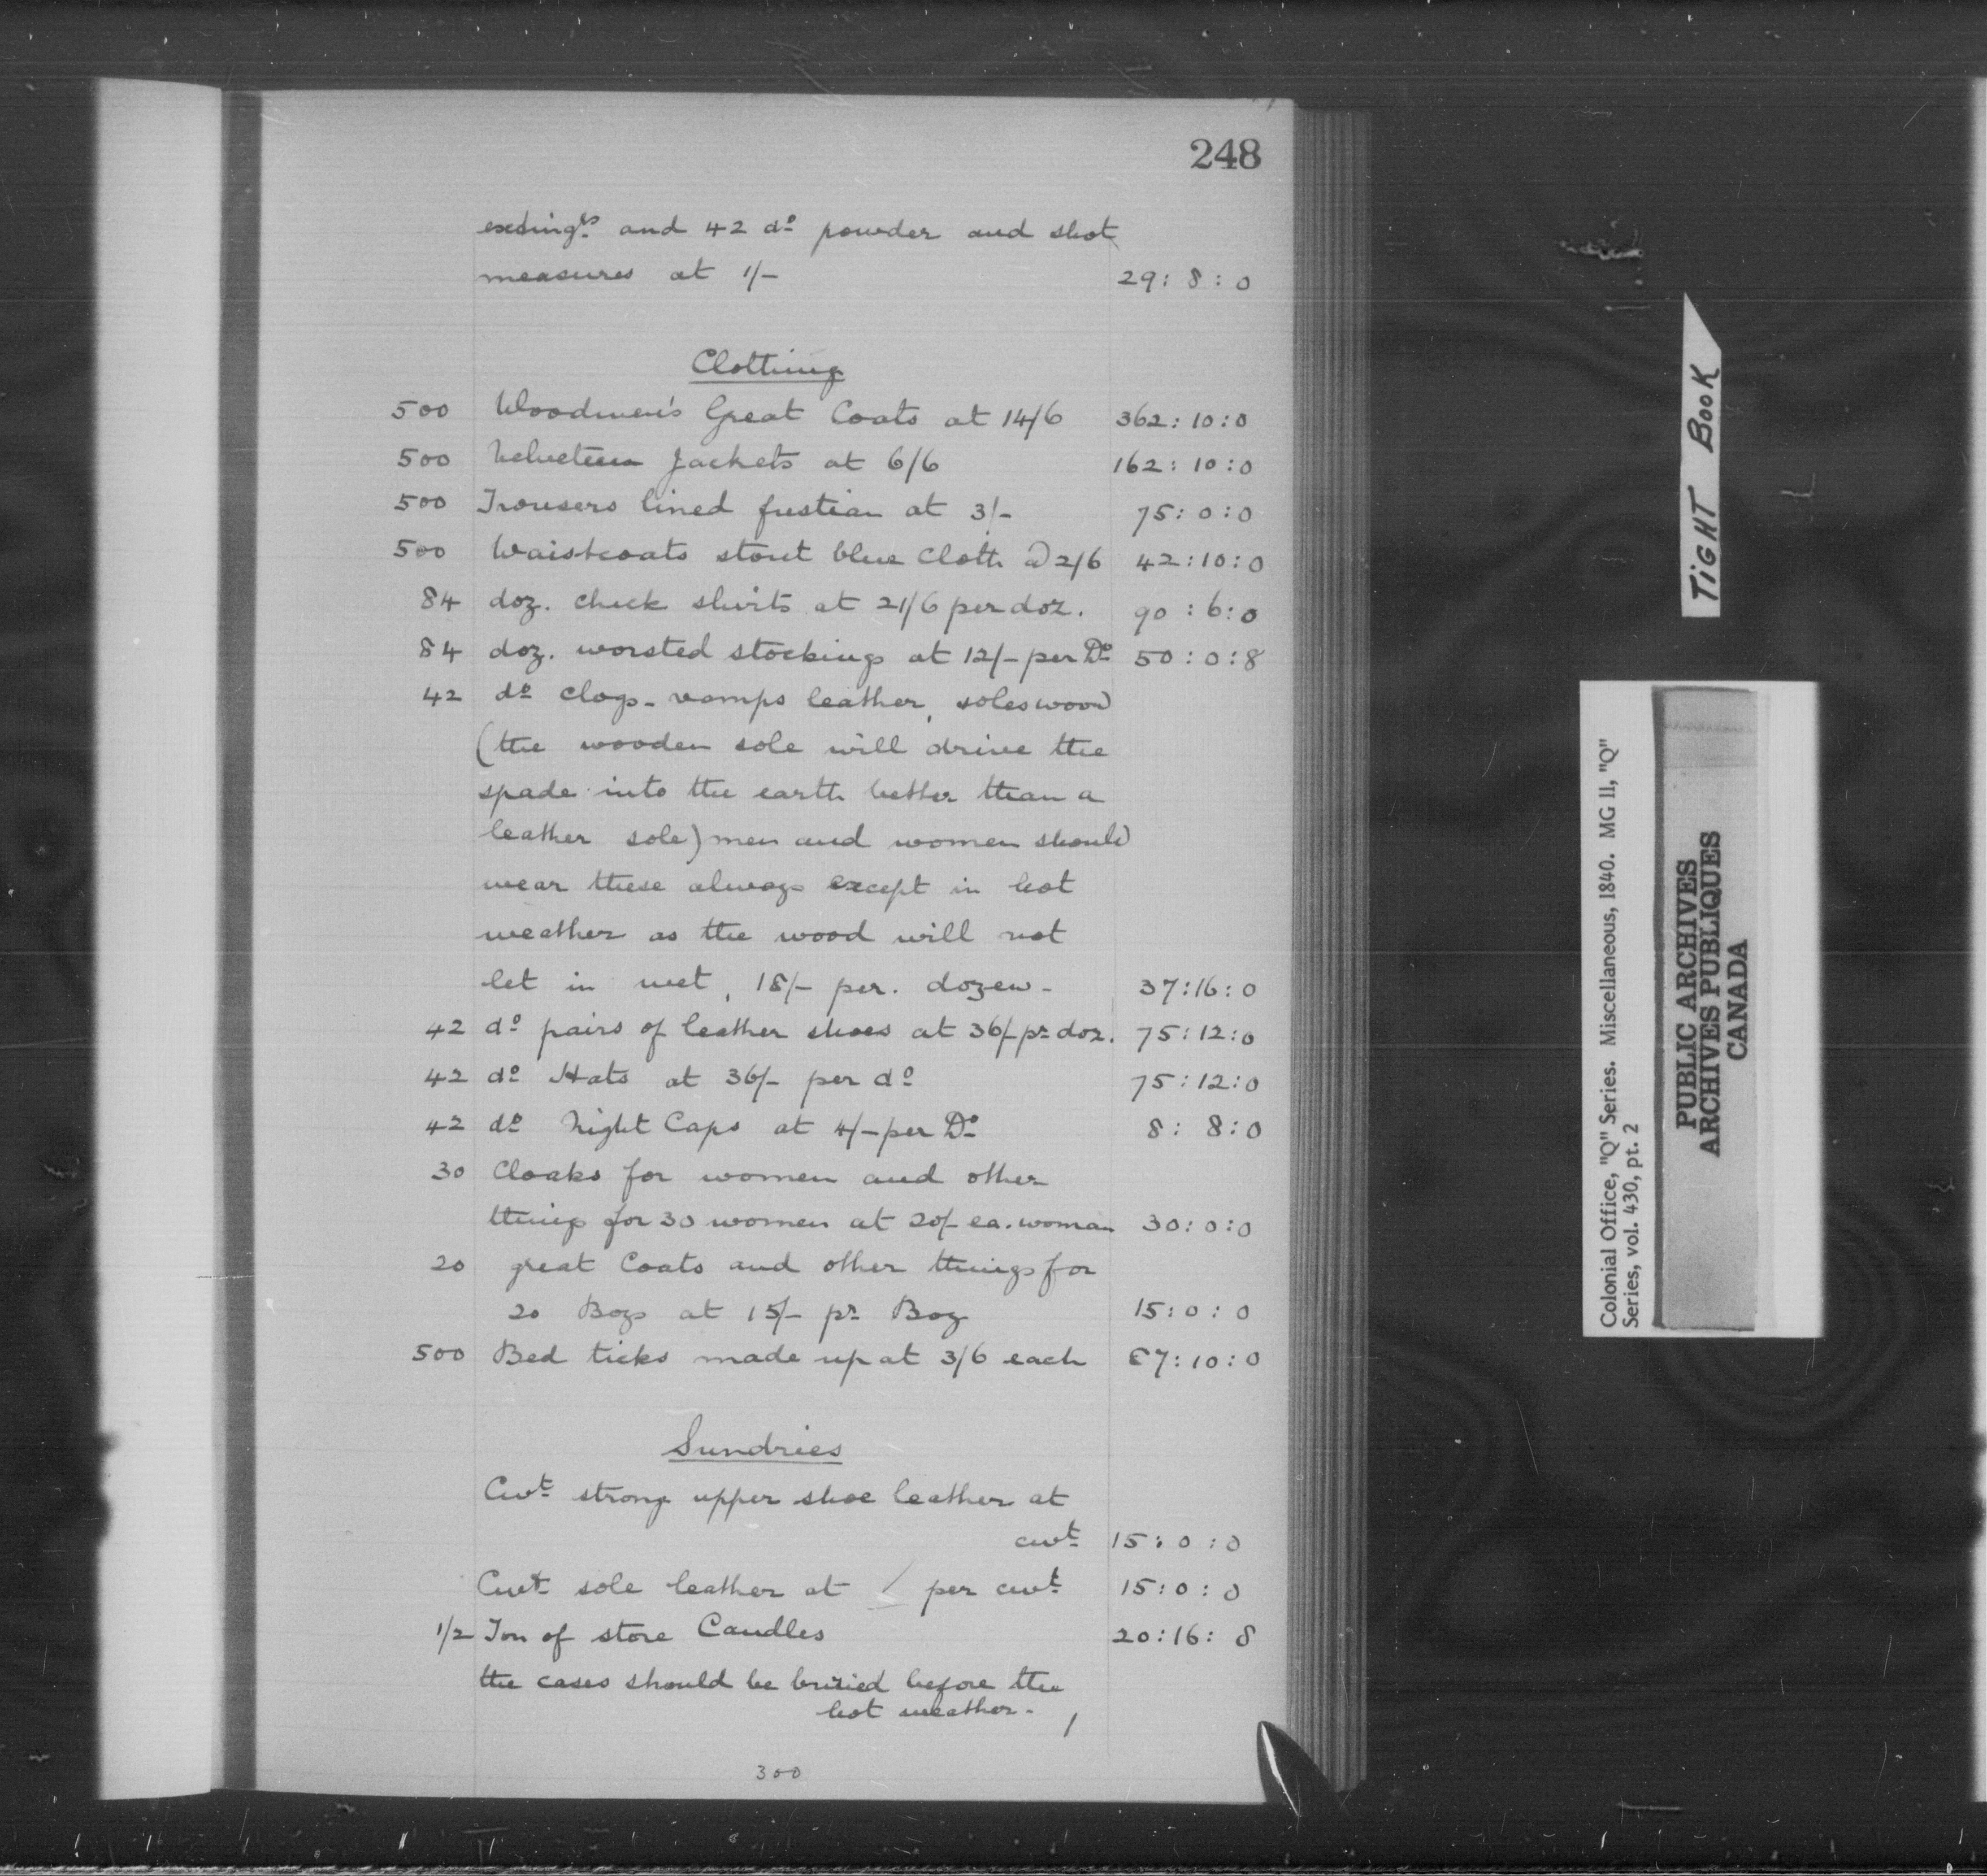 248
and 42 dº powder and shot
measures at 1/- 29: 8: 0
Clothing
500 Woodmen's Great Coats at 14/6 362: 10: 0
500 Velveteen Jackets at 6/6 162: 10: 0
500 Trousers lined fustian at 3/- 75: 0: 0
500 Waistcoats stout blue Cloth @ 2/6 42: 10: 0
84 doz. check shirts at 21/6 per doz. 90: 6: 0
84 doz. worsted stockings at 12/- per Dº 50: 0: 8
42 dº Clogs - vamps leather, soles wood
(the wooden sole will drive the
spade into the earth better than a
leather sole) men and women should
wear these always except in hot
weather as the wood will not
let in wet, 18/- per. dozen - 37: 16: 0
42 dº pairs of leather shoes at 36/- pr doz. 75: 12: 0
42 dº Hats at 36/- per dº 75: 12: 0
42 dº Night Caps at 4/- per Dº 8: 8: 0
30 Cloaks for women and other
things for 30 women at 20/- ea. woman 30: 0: 0
20 great Coats and other things for
20 Boys at 15/- pr Boy 15: 0: 0
500 Bed ticks made up at 3/6 each 87: 10: 0
Sundries
Cwt strong upper shoe leather at
cwt 15: 0: 0
Cwt sole leather at / per cwt 15: 0: 0
1/2 Ton of store Candles 20: 16: 8
the cases should be buried before the
hot weather. /
300
TIGHT BOOK
Colonial Office, "Q" Series. Miscellaneous, 1840. MG 11, "Q"
Series, vol. 430, pt. 2
PUBLIC ARCHIVES
ARCHIVES PUBLIQUES
CANADA